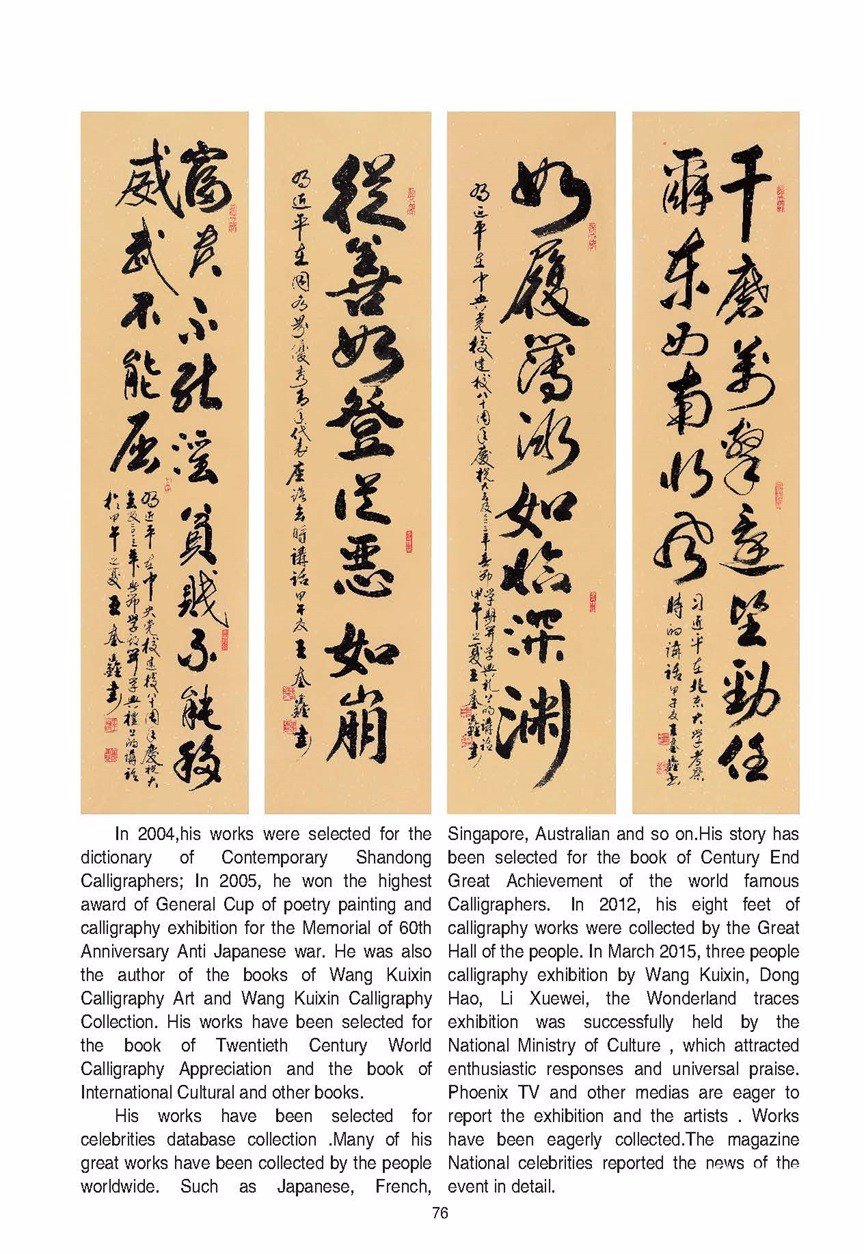 千磨萬擊還堅勁任
爾東西南北风
习近平在北京大学考察
時的講話甲午夏王奎鑫書
如履薄冰如临深渊
习近平在中央党校建校八十周年慶祝大会
学期開学典礼上的講話
甲午之夏王奎鑫書
從善如登從惡如崩
习近平在同各界優秀青年代表座談会時講話甲午夏王奎鑫書
富貴不能淫貧賤不能移
威武不能屈
习近平在中央党校建校八十周年慶祝大
学期開学典禮上的講話
於甲午之夏王奎鑫書
In 2004,his works were selected for the
dictionary of Contemporary Shandong
Calligraphers; In 2005, he won the highest
award of General Cup of poetry painting and
calligraphy exhibition for the Memorial of 60th
Anniversary Anti Japanese war. He was also
the author of the books of Wang Kuixin
Calligraphy Art and Wang Kuixin Calligraphy
Collection. His works have been selected for
the book of Twentieth Century World
Calligraphy Appreciation and the book of
International Cultural and other books.
His works have been selected for
celebrities database collection .Many of his
great works have been collected by the people
worldwide. Such as Japanese, French,
Singapore, Australian and so on.His story has
been selected for the book of Century End
Great Achievement of the world famous
Calligraphers. In 2012, his eight feet of
calligraphy works were collected by the Great
Hall of the people. In March 2015, three people
calligraphy exhibition by Wang Kuixin, Dong
Hao, Li Xuewei, the Wonderland traces
exhibition was successfully held by the
National Ministry of Culture , which attracted
enthusiastic responses and universal praise.
Phoenix TV and other medias are eager to
report the exhibition and the artists . Works
have been eagerly collected.The magazine
National celebrities reported the news of the
event in detail.
76